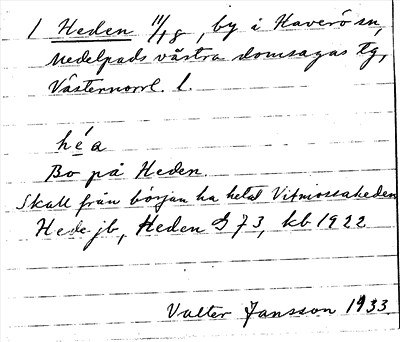 1 Heden 11/18, by i Haverö sn,
Medelpads västra domsagas tg,
Västernorrl. l.
héa
Bo på Heden.
Skall från början ha hetat Vitmossaheden
Hede jb, Heden G 73, kb 1922
Valter Jansson 1933